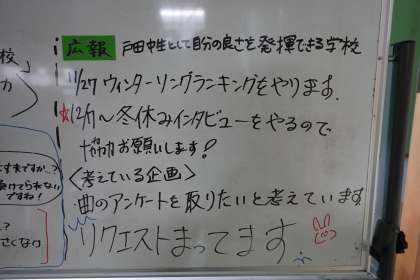 広報 戸田中生として自分の良さを発揮できる学校
11/27 ウィンターソングランキングをやります.
☆12/1〜冬休みインタビューをやるので
協力お願いします!
<考えている企画>
曲のアンケートを取りたいと考えています.
リクエストまってます.
校
カ
ますか..?
けてられない
ですね!
..?
さくなり